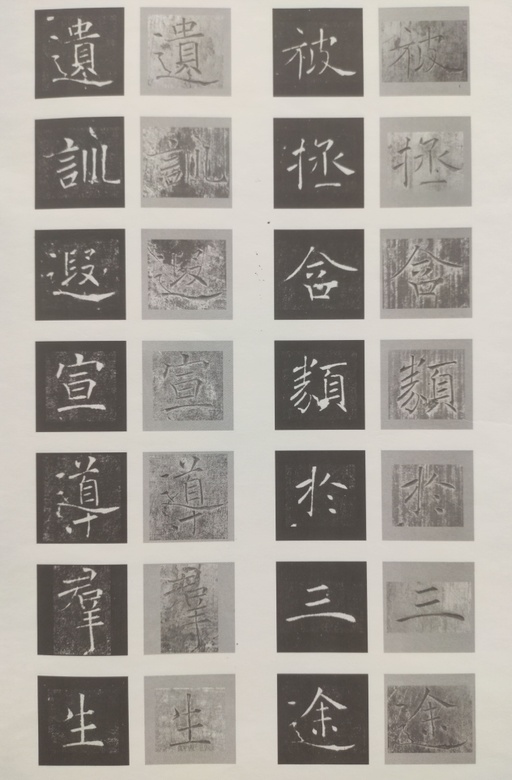 被拯含類於三途
被拯含類於三途
遺訓遐宣導群生
遺訓遐宣導群生